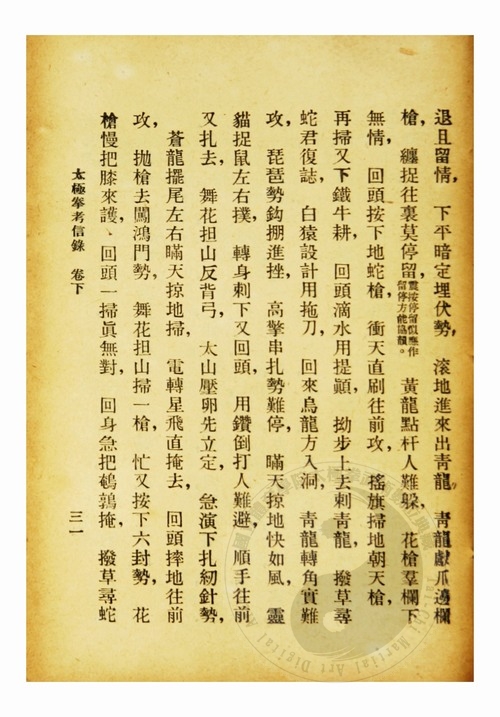 退且留情， 下平暗定埋伏勢， 滾地進來出青龍， 青龍獻爪邊欄
槍， 纏捉往裏莫停留震按停留似應作留停方能協韻。 黃龍點杆人難躲， 花槍羣欄下
無情， 回頭按下地蛇槍， 衝天直刷往前攻， 搖旗掃地朝天槍，
再掃又下鐵牛耕， 回頭滴水用提顚， 拗步上去刺青龍， 撥草尋
蛇君復誌， 白猿設計用拖刀， 回來烏龍方入洞， 青龍轉角實難
攻， 琵琶勢鈎掤進挫， 高擎串扎勢難停， 瞞天掠地快如風， 靈
貓捉鼠左右撲， 轉身刺下又回頭， 用鑽倒打人難避， 順手往前
又扎去， 舞花担山反背弓， 太山壓卵先立定， 急演下扎紉針勢，
蒼龍擺尾左右瞞天掠地掃， 電轉星飛直掩去， 回頭摔地往前
攻， 拋槍去闖鴻門勢， 舞花担山掃一槍， 忙又按下六封勢， 花
槍慢把膝來護、 回頭一掃眞無對， 回身急把鵪鶉掩， 撥草尋蛇
太極拳考信錄 卷下
三一